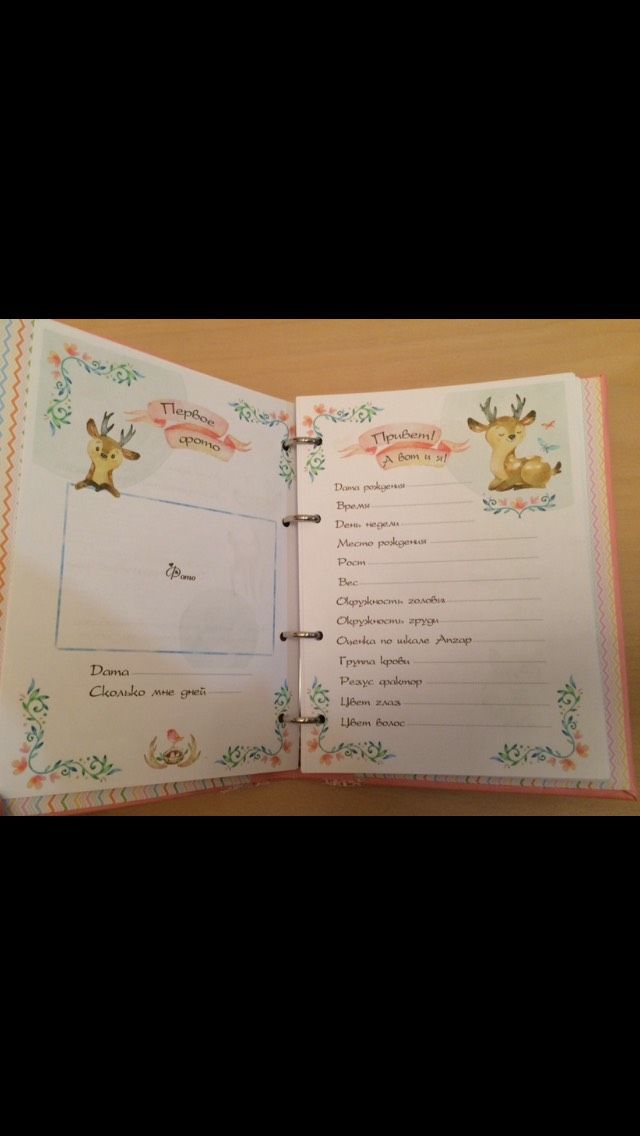 Первое
фото
Фото
Дата
Сколько мне дней
Привет!
А вот и я!
Дата рождения
Время
День недели
Место рождения
Рост
Вес
Окружность головы
Окружность груди
Оценка по шкале Апгар
Группа крови
Резус фактор
Цвет глаз
Цвет волос